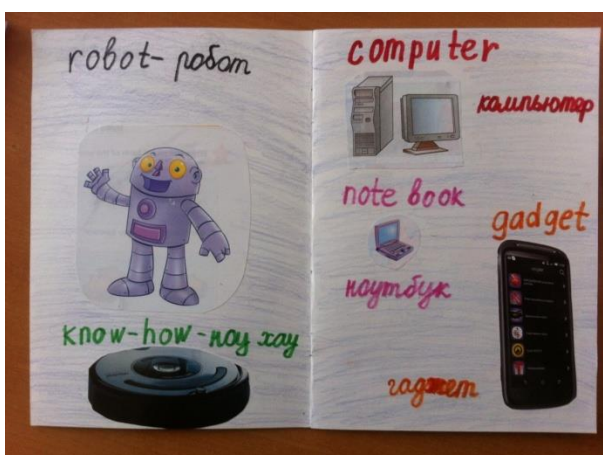 robot - робот
know-how - ноу хау
computer
компьютер
note book
ноутбук
gadget
гаджет